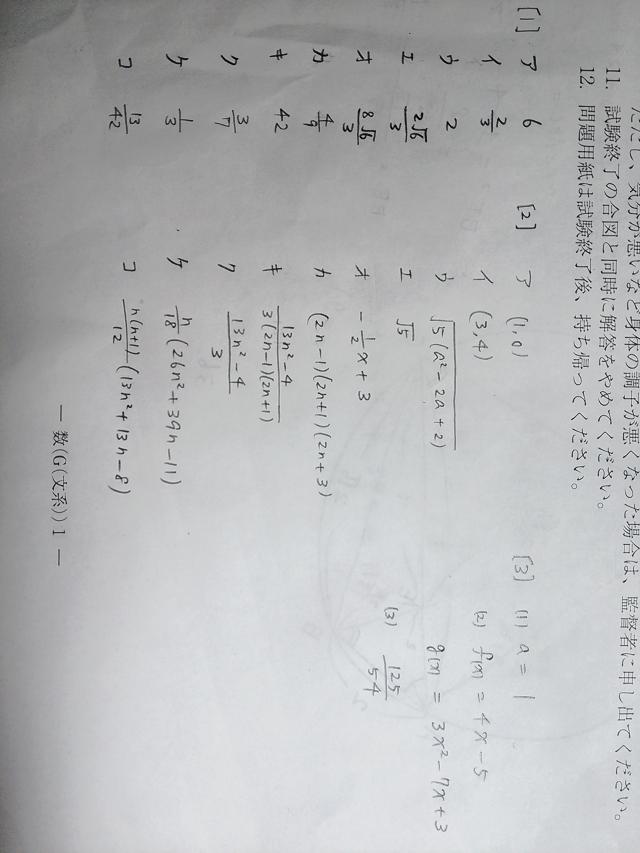 ただし、気分が悪いなど身体の調子が悪くなった場合は、監督者に申し出てください。
11. 試験終了の合図と同時に解答をやめてください。
12. 問題用紙は試験終了後、持ち帰ってください。
[1]
ア 6
イ 2/3
ウ 2
エ 2√6/3
オ 8√6/3
カ 4/9
キ 42
ク 3/7
ケ 1/3
コ 13/42
[2]
ア (1,0)
イ (3,4)
ウ √5(a²-2a+2)
エ √5
オ -1/2x+3
カ (2n-1)(2n+1)(2n+3)
キ 13n²-4/3(2n-1)(2n+1)
ク 13n²-4/3
ケ n/18(26n²+39n-11)
コ n(n+1)/12(13n²+13n-8)
[3]
(1) a = 1
(2) f(x) = 4x-5
g(x) = 3x²-7x+3
(3) 125/54
― 数(G(文系)) 1 ―